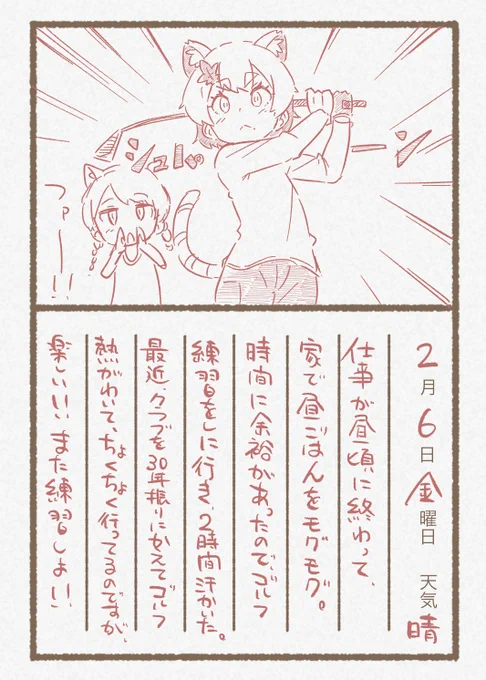 シュパーン
ファーーー!!
2月6日金曜日 天気 晴
仕事が昼頃に終わって、
家で昼ごはんをモグモグ。
時間に余裕があったので、ゴルフ
練習をしに行き、2時間汗かいた。
最近、クラブを30年振りにかえてゴルフ
熱がわいて、ちょくちょく行ってるのですが、
楽しいい また練習しよい